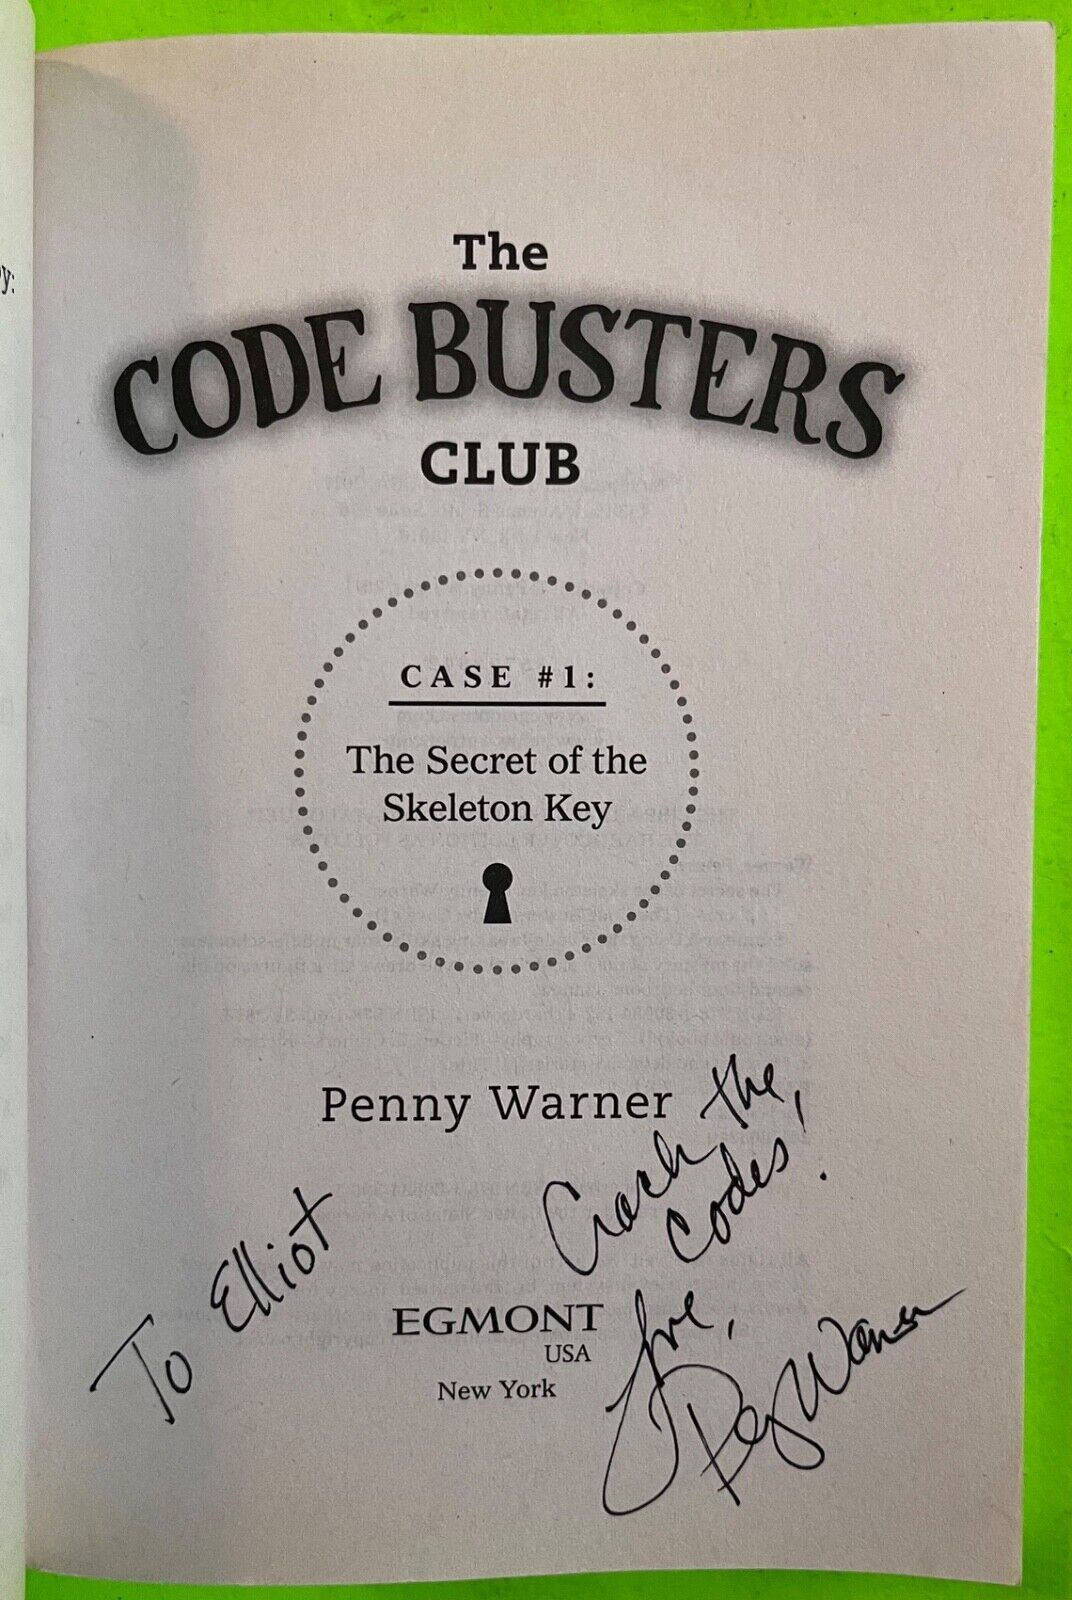 The
CODE BUSTERS
CLUB
CASE #1:
The Secret of the
Skeleton Key
Penny Warner
Crack the
Codes!
To Elliot
EGMONT
USA
New York
Love,
Penny Warner